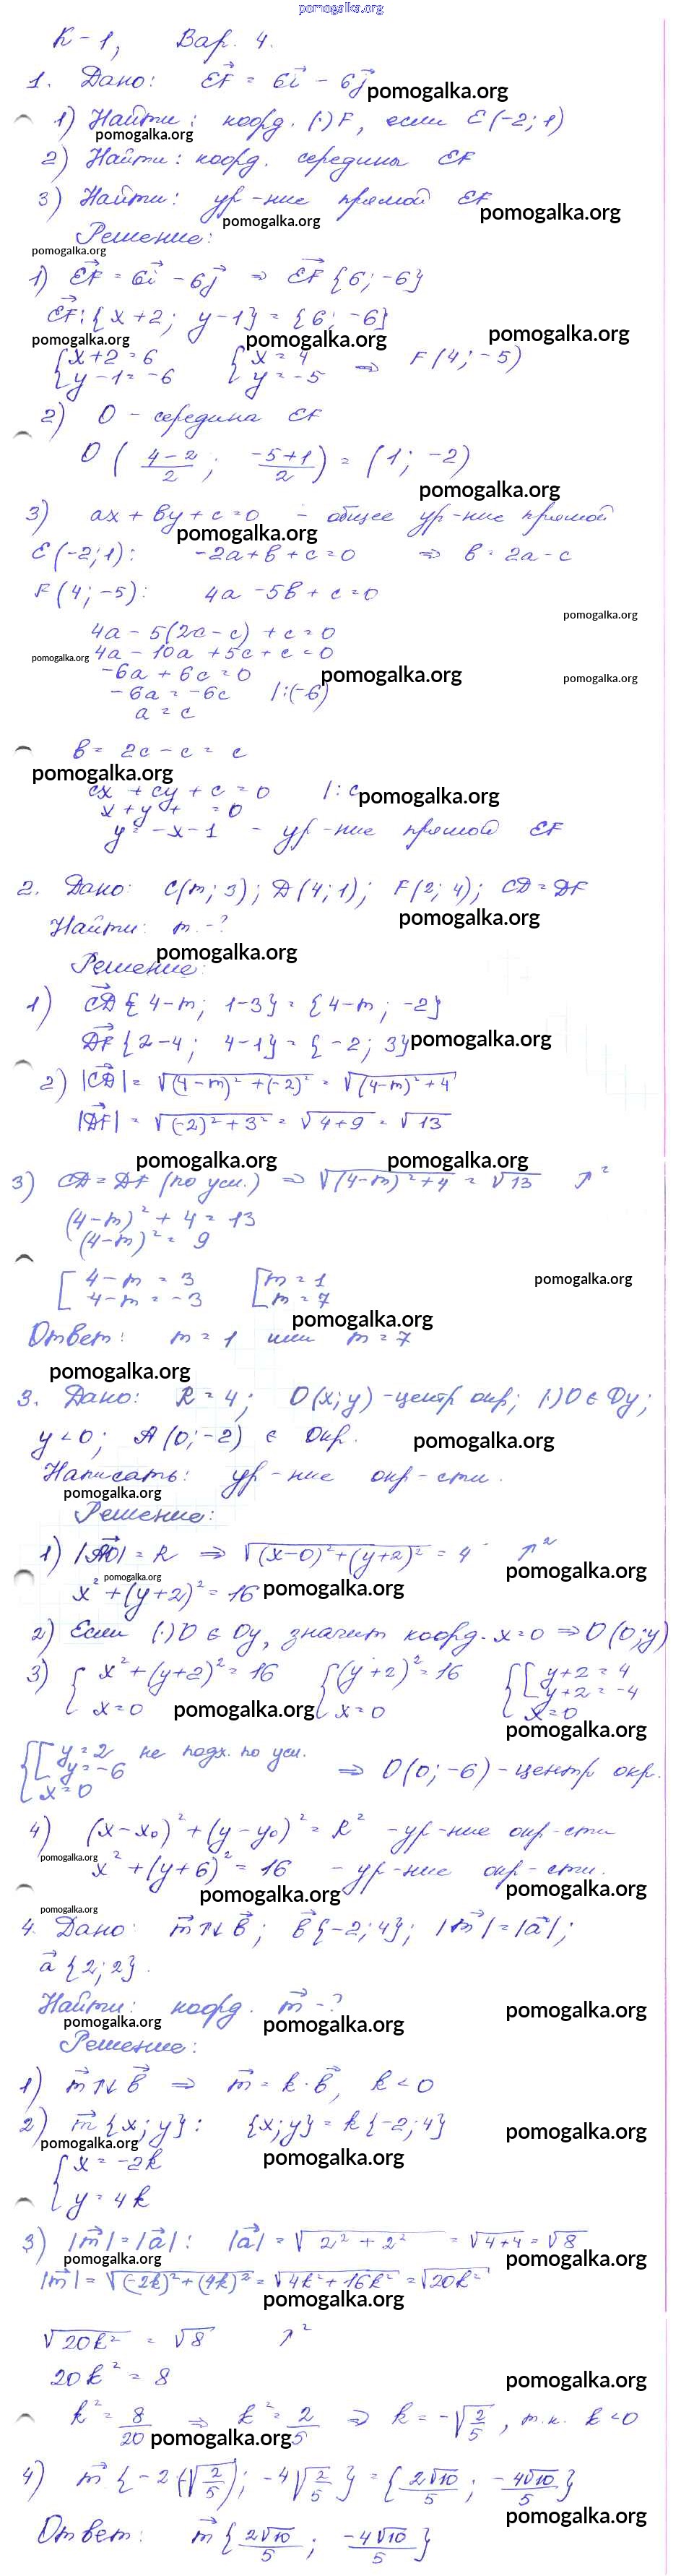 pomogalka.org
К-1, Вар. 4.
1. Дано: EF = 6i - 6j pomogalka.org
1) Найти: коорд. (·) F, если E(-2; 1)
pomogalka.org
2) Найти: коорд. середины EF
3) Найти: ур-ние прямой EF
pomogalka.org pomogalka.org
Решение:
pomogalka.org
1) EF = 6i - 6j ⇒ EF {6; -6}
EF: {x+2; y-1} = {6; -6}
pomogalka.org pomogalka.org pomogalka.org
{x+2=6 {x=4 ⇒ F(4; -5)
{y-1=-6 {y=-5
2) O - середина EF
O (4-2/2; -5+1/2) = (1; -2)
pomogalka.org
3) ax + by + c = 0 - общее ур-ние прямой
pomogalka.org
E(-2; 1): -2a + b + c = 0 ⇒ b = 2a - c
F(4; -5): 4a - 5b + c = 0
pomogalka.org
4a - 5(2a - c) + c = 0
pomogalka.org 4a - 10a + 5c + c = 0
-6a + 6c = 0 pomogalka.org pomogalka.org
-6a = -6c |:(-6)
a = c
b = 2c - c = c
pomogalka.org
cx + cy + c = 0 |: c pomogalka.org
x + y + = 0
y = -x - 1 - ур-ние прямой EF
2. Дано: C(m; 3); D(4; 1); F(2; 4); CD = DF
pomogalka.org
Найти: m - ?
pomogalka.org
Решение:
1) CD {4-m; 1-3} = {4-m; -2}
DF {2-4; 4-1} = {-2; 3} pomogalka.org
2) |CD| = √(4-m)² + (-2)² = √(4-m)² + 4
|DF| = √(-2)² + 3² = √4+9 = √13
pomogalka.org pomogalka.org
3) CD = DF (по усл.) ⇒ √(4-m)² + 4 = √13 ↗²
(4-m)² + 4 = 13
(4-m)² = 9
[4-m = 3 [m = 1 pomogalka.org
[4-m = -3 [m = 7
pomogalka.org
Ответ: m = 1 или m = 7
pomogalka.org
3. Дано: R = 4; O(x; y) - центр окр; (·) O ∈ Oy;
y < 0; A(0; -2) ∈ Окр. pomogalka.org
Написать: ур-ние окр-сти.
pomogalka.org
Решение:
1) |AO| = R ⇒ √(x-0)² + (y+2)² = 4 ↗²
pomogalka.org pomogalka.org
x² + (y+2)² = 16 pomogalka.org
2) Если (·) O ∈ Oy, значит коорд. x=0 ⇒ O(0; y)
3) {x² + (y+2)² = 16 {(y+2)² = 16 {[y+2 = 4
[y+2 = -4
x=0 pomogalka.org x=0 x=0
pomogalka.org
{[y = 2 не подх. по усл.
[y = -6 ⇒ O(0; -6) - центр окр.
x = 0
4) (x-x₀)² + (y-y₀)² = R² - ур-ние окр-сти
pomogalka.org
x² + (y+6)² = 16 - ур-ние окр-сти.
pomogalka.org pomogalka.org
pomogalka.org
4. Дано: m ↑↓ b; b {-2; 4}; |m| = |a|;
a {2; 2}.
Найти: коорд. m - ? pomogalka.org
pomogalka.org pomogalka.org
Решение:
1) m ↑↓ b ⇒ m = k · b, k < 0
2) m {x; y}: {x; y} = k {-2; 4} pomogalka.org
pomogalka.org pomogalka.org
{x = -2k
{y = 4k
3) |m| = |a|: |a| = √2² + 2² = √4+4 = √8
pomogalka.org pomogalka.org
|m| = √(-2k)² + (4k)² = √4k² + 16k² = √20k²
pomogalka.org
√20k² = √8 ↗²
20k² = 8 pomogalka.org
k² = 8/20 ⇒ k² = 2/5 ⇒ k = -√2/5, т.к. k < 0
pomogalka.org
4) m {-2·(-√2/5); -4√2/5} = {2√10/5; -4√10/5}
pomogalka.org
Ответ: m {2√10/5; -4√10/5}